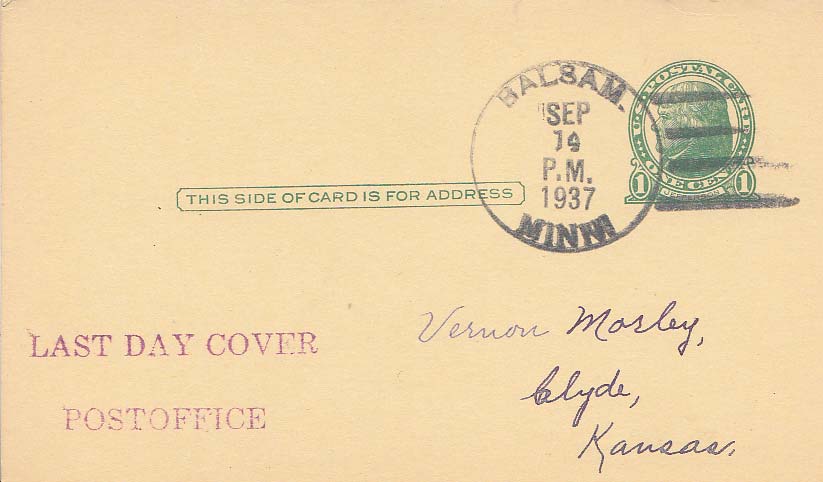 BALSAM.
SEP
14
P.M.
1937
MINN
U.S. POSTAL CARD
ONE CENT
1 JEFFERSON 1
THIS SIDE OF CARD IS FOR ADDRESS
LAST DAY COVER
POSTOFFICE
Vernon Mosley,
Clyde,
Kansas.